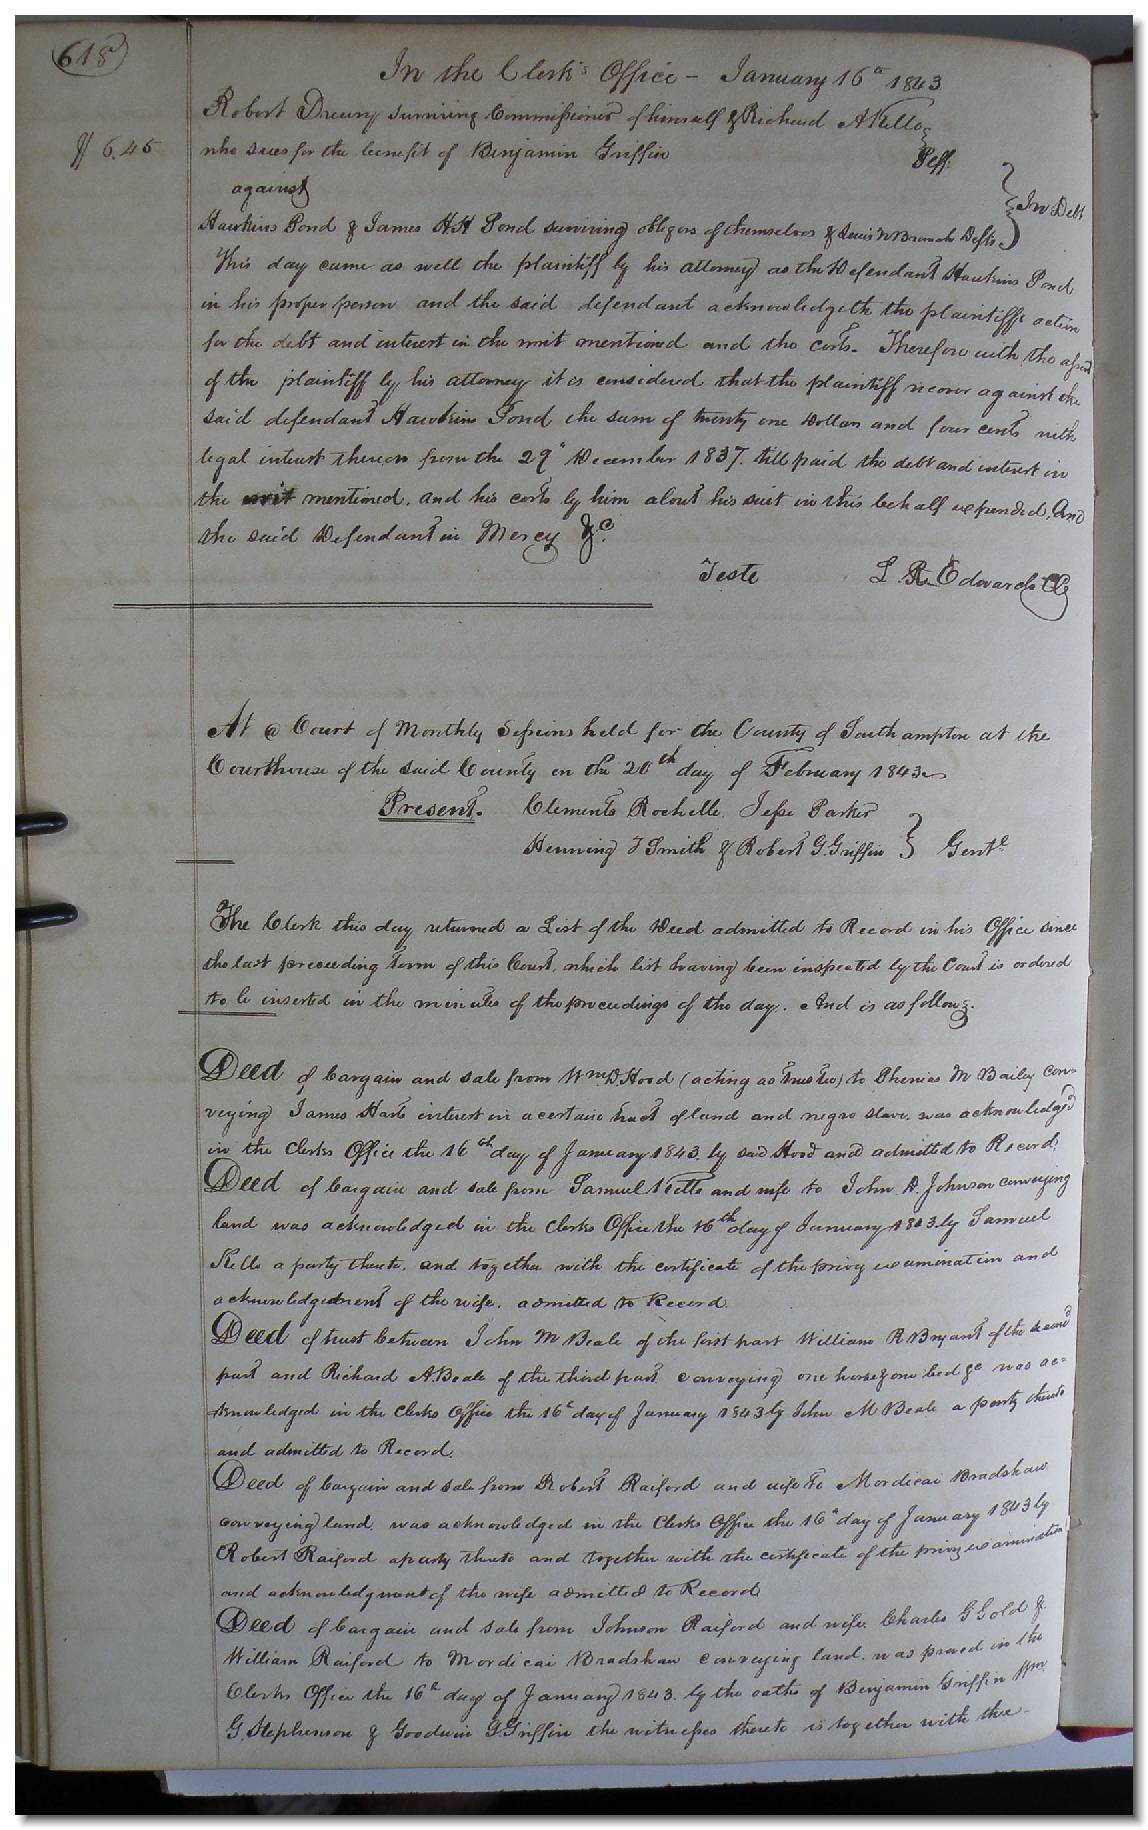 618
In the Clerk's Office - January 16th 1843
Robert Drewry surviving Commissioner of himself & Richard A Kello
$ 6.45
who sues for the benefit of Benjamin Griffin Peff.
against
In Debt
Hawkins Pond & James H H Pond surviving obligors of themselves & Lewis W Branch Defts.
This day came as well the plaintiff by his attorney as the Defendant Hawkins Pond
in his proper person and the said defendant acknowledgeth the plaintiffs action
for the debt and interest in the writ mentioned and the costs. Therefore with the
of the plaintiff by his attorney it is considered that the plaintiff recover against the
said defendant Hawkins Pond the sum of twenty one Dollars and four cents with
legal interest thereon from the 29th December 1837. till paid the debt and interest in
the writ mentioned, and his costs by him about his suit in this behalf expended. And
the said Defendant in Mercy &c.
Teste L R Edwards CC
At a Court of Monthly Sessions held for the County of Southampton at the
Courthouse of the said County on the 20th day of February 1843
Present. Clements Rochelle, Jesse Parker
Henning T Smith & Robert G. Griffin } Gentl.
The Clerk this day returned a List of the Deed admitted to Record in his Office since
the last preceeding term of this Court, which list having been inspected by the Court is ordered
to be inserted in the minutes of the proceedings of the day. And is as follows.
Deed of bargain and sale from Wm D. Hood (acting as trustee) to M Bailey con-
veying James Harts interest in a certain tract of land and negro slave. was acknowledged
in the Clerks Office the 16th day of January 1843. by said Hood and admitted to Record.
Deed of bargain and sale from Samuel Kello and wife to John A. Johnson conveying
land was acknowledged in the Clerks Office the 16th day of January 1843. by Samuel
Kello a party thereto. and together with the certificate of the privy examination and
acknowledgement of the wife. admitted to Record.
Deed of trust between John M Beale of the first part William R Bryant of the second
part and Richard A. Beale of the third part conveying one horse, one bed &c was ac=
knowledged in the Clerks Office the 16th day of January 1843 by John M Beale a party thereto
and admitted to Record.
Deed of bargain and sale from Robert Raiford and wife to Mordicai Bradshaw
conveying land, was acknowledged in the Clerks Office the 16th day of January 1843 by
Robert Raiford a party thereto and together with the certificate of the privy examination
and acknowledgment of the wife admitted to Record
Deed of bargain and sale from Johnson Raiford and wife. Charles G Gold &
William Raiford to Mordicai Bradshaw conveying land. was proved in the
Clerks Office the 16th day of January 1843. by the oaths of Benjamin Griffin Wm
G. Stephenson & Goodwin G. Griffin the witnesses thereto is together with the-